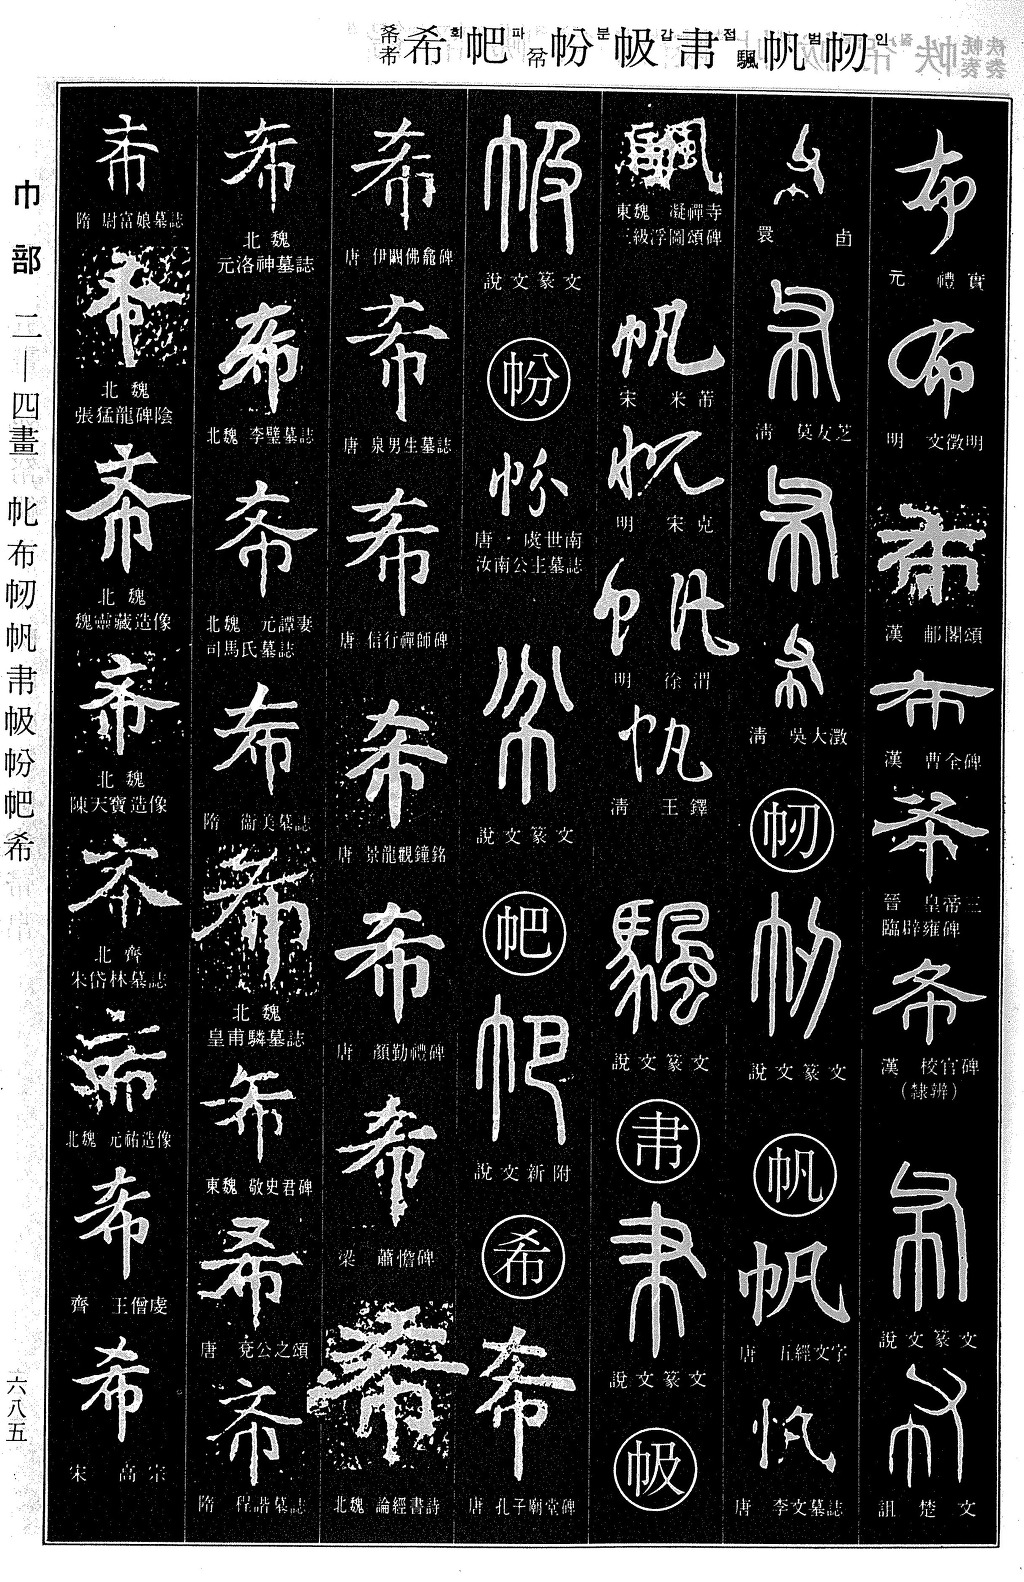 希 희
帊 파
帉 분
帴 갑
帇 접
帆 범
帉 인
巾部 二—四畫 布帆希
六八五
布
元 禮實
布
明 文徵明
布
漢 郙閣頌
布
漢 曹全碑
希
晉 皇帝三
臨辟雍碑
希
漢 校官碑
(隸辨)
布
說文篆文
布
詛楚文
布
睘卣
布
清 莫友芝
布
布
清 吳大澂
說文篆文
帆
帆
唐 五經文字
帆
唐 李文墓誌
颿
東魏 凝禪寺
三級浮圖頌碑
帆
宋 米芾
帆
明 宋克
帆
明 徐渭
帆
清 王鐸
颿
說文篆文
說文篆文
說文篆文
帉
帉
唐 虞世南
汝南公主墓誌
說文篆文
帊
帊
說文新附
希
希
唐 孔子廟堂碑
希
唐 伊闕佛龕碑
希
唐 泉男生墓誌
希
唐 信行禪師碑
希
唐 景龍觀鐘銘
希
唐 顏勤禮碑
希
梁 蕭憺碑
希
北魏 論經書詩
希
北魏
元洛神墓誌
希
北魏 李璧墓誌
希
北魏 元譚妻
司馬氏墓誌
希
隋 衞美墓誌
希
北魏
皇甫驎墓誌
希
東魏 敬史君碑
希
唐 兗公之頌
希
隋 程諧墓誌
希
隋 尉富娘墓誌
希
北魏
張猛龍碑陰
希
北魏
魏靈藏造像
希
北魏
陳天寶造像
希
北齊
朱岱林墓誌
希
北魏 元祐造像
希
齊 王僧虔
希
宋 高宗